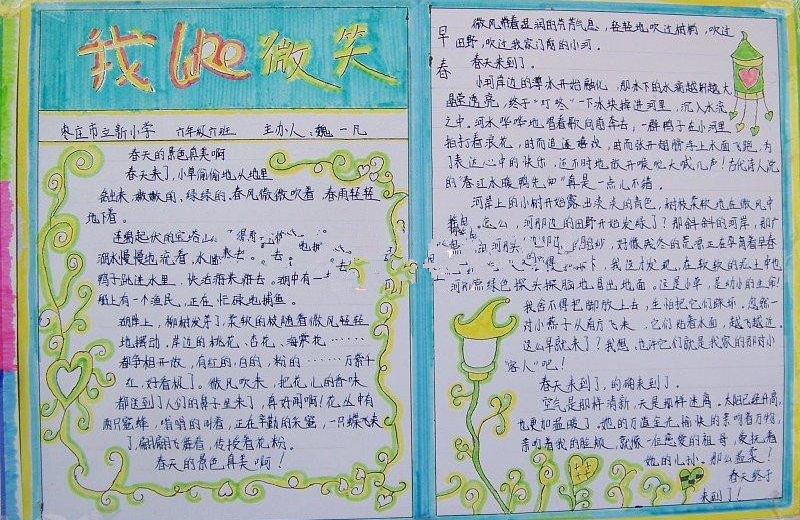 我 LIKE 微笑
枣庄市立新小学 六年级六班 主办人:魏一凡
春天的景色真美啊
春天来了,小草偷偷地从地里
钻出来,嫩嫩的,绿绿的,春风微微吹着,春雨轻轻
地下着。
连绵起伏的宝塔山
湖水慢慢地流着,水面
鸭子跳进水里,快活游来游去。湖中有一
艇上有个渔民,正在忙碌地捕鱼。
湖岸上,柳树发芽了,柔软的枝随着微风轻轻
地摆动,岸边的桃花、杏花、海棠花……
都争相开放,有红的,白的,粉的……万紫千
红,好看极了。微风吹来,把花儿的香味
都送到了人们的鼻子里来了,真好闻啊!花丛中有
两只蜜蜂,嗡嗡的叫着,正在辛勤的采蜜,一只蝶飞来
了,翩翩飞舞着,传授着花粉。
春天的景色真美啊!
早春
微风带着湿润的芳芳气息,轻轻地吹过树梢,吹过
田野,吹过我家门前的小河。
春天来到了。
小河岸边的薄冰开始融化,那水下的水滴越积越大
晶莹透亮,终于“叮咚”一下冰块掉进河里,沉入水流
之中。河水哗哗地唱着歌向前奔去,一群鸭子在小河里
拍打着浪花,时而追逐嬉戏,时而张开翅膀浮上水面飞跑,为
了表达心中的快乐,还不时地放开喉咙大喊几声!古代诗人说
的“春江水暖鸭先知”真是一点儿不错。
河岸上的小树开始露出浓浓的青色,树枝柔软地在微风中
怎么,河那边的田野开始发绿了?那斜斜的河岸,那广
好像残冬的荒凉正在孕育着早春
我这才发现,在软软的泥土中也
绿色探头探脑地冒出地面。这是小草,是幼小的生命!
我舍不得把脚放上去,生怕把它们踩坏,忽然一
对小燕子从南方飞来,它们贴着水面,越飞越近。
这么早就来了?我想,也许它们就是我家的那对小
“客人”吧!
春天来到了,的确来到了。
空气是那样清新,天是那样迷离。太阳已经升高,
也更加温暖了。她的万道金光愉快的亲吻着万物,
亲吻着我的脸颊,就像一位慈爱的祖母,爱抚着
她的儿孙。那么温柔!
春天终于
来到了!